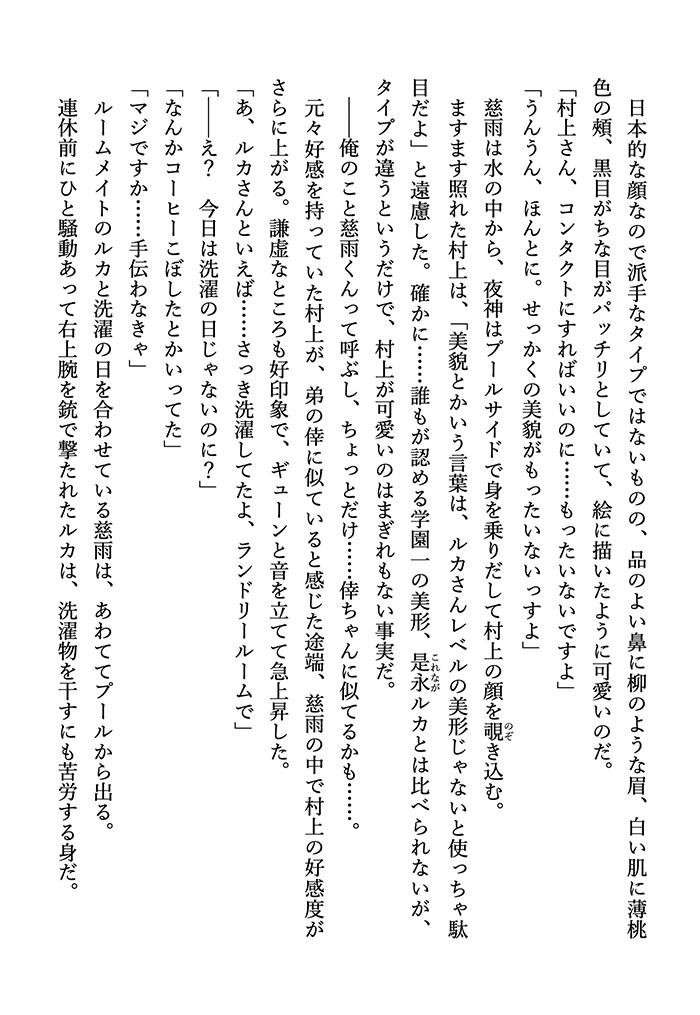 日本的な顔なので派手なタイプではないものの、品のよい鼻に柳のような眉、白い肌に薄桃
色の頰、黒目がちな目がパッチリとしていて、絵に描いたように可愛いのだ。
「村上さん、コンタクトにすればいいのに……もったいないですよ」
「うんうん、ほんとに。せっかくの美貌がもったいないっすよ」
慈雨は水の中から、夜神はプールサイドで身を乗りだして村上の顔を覗き込む。
ますます照れた村上は、「美貌とかいう言葉は、ルカさんレベルの美形じゃないと使っちゃ駄
目だよ」と遠慮した。確かに……誰もが認める学園一の美形、是永ルカとは比べられないが、
タイプが違うというだけで、村上が可愛いのはまぎれもない事実だ。
――俺のこと慈雨くんって呼ぶし、ちょっとだけ……倖ちゃんに似てるかも……。
元々好感を持っていた村上が、弟の倖に似ていると感じた途端、慈雨の中で村上の好感度が
さらに上がる。謙虚なところも好印象で、ギューンと音を立てて急上昇した。
「あ、ルカさんといえば……さっき洗濯してたよ、ランドリールームで」
「――え？　今日は洗濯の日じゃないのに？」
「なんかコーヒーこぼしたとかいってた」
「マジですか……手伝わなきゃ」
ルームメイトのルカと洗濯の日を合わせている慈雨は、あわててプールから出る。
連休前にひと騒動あって右上腕を銃で撃たれたルカは、洗濯物を干すにも苦労する身だ。